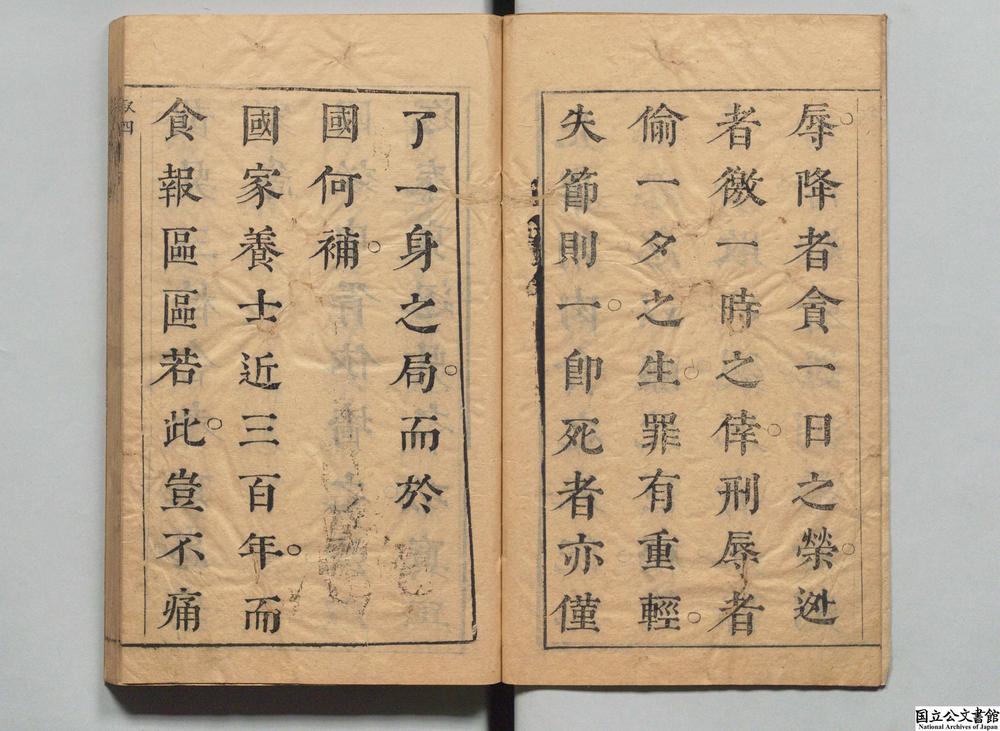 辱降者貪一日之榮迯
者徼一時之倖刑辱者
偷一夕之生罪有重輕
失節則一卽死者亦僅
了一身之局而於
國何補
國家養士近三百年而
食報區區若此豈不痛
国立公文書館
National Archives of Japan